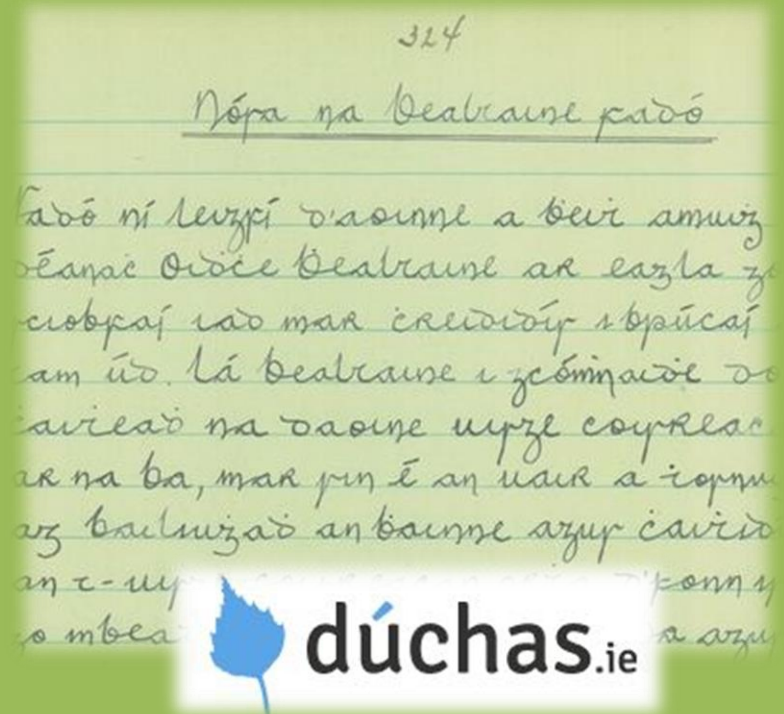 324
Nósa na Bealtaine fadó
Fadó ní leigfí d'aoinne a ḃeiṫ amuiġ
déanaċ Oiḋċe Bealtaine ar eagla
sciobfaí iad mar ċreididís i bpúcaí
am úd. Lá Bealtaine i gcómnaiḋe do
ċaiṫeaḋ na daoine uisge coisreac
ar na ba, mar sin é an uair a
ag bailiuġaḋ an bainne agus
an t-uis
go mbea
dúchas.ie